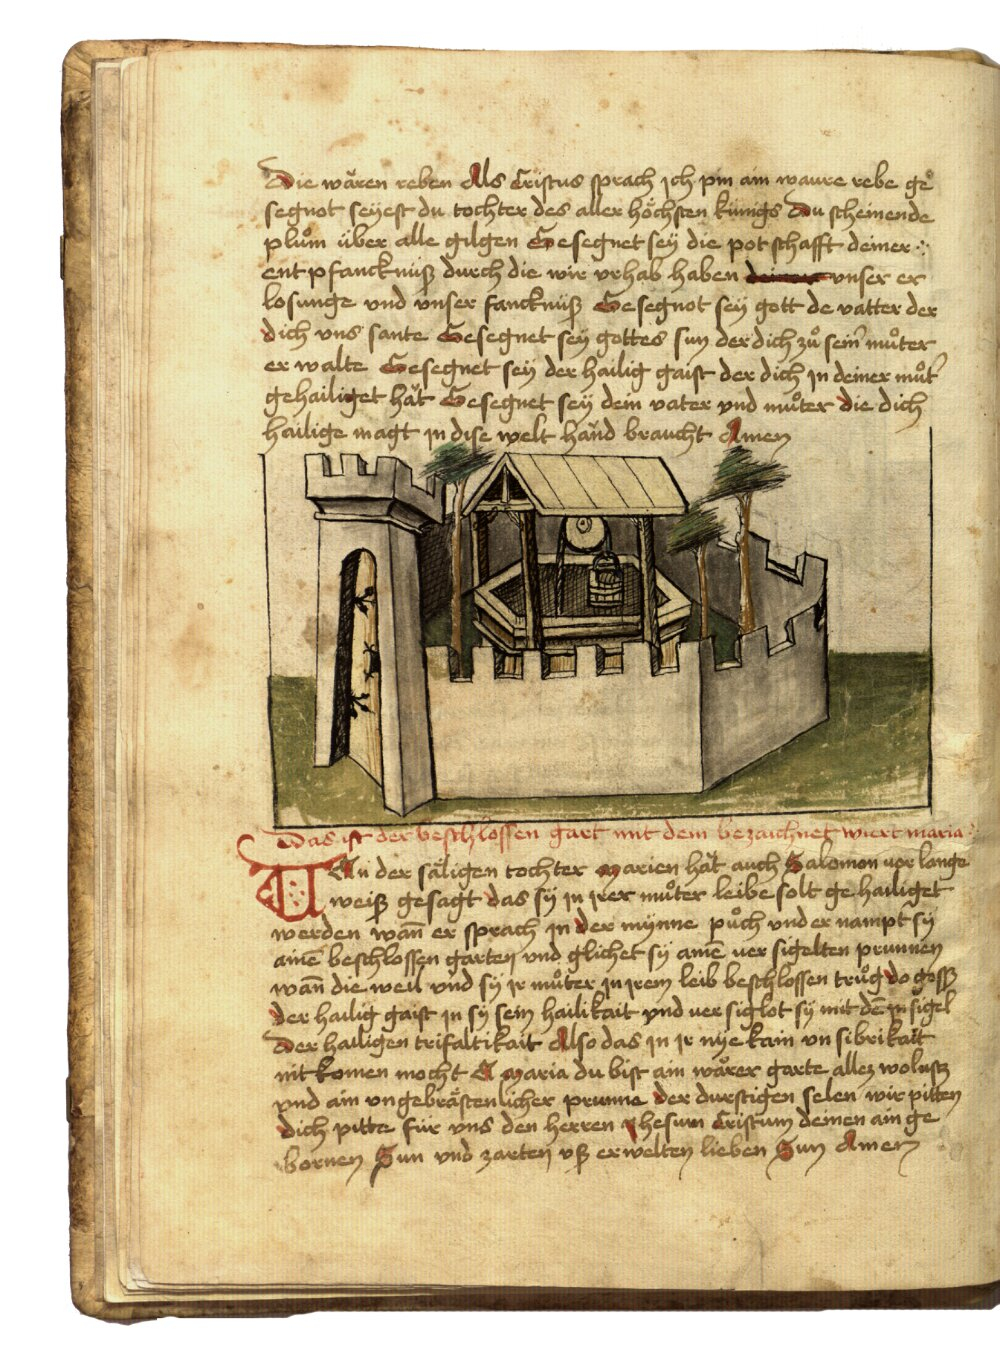 Die wären reben Als Cristus sprach jch pin ain waure rebe ge
segnot seyest du tochter des aller höchsten künigs Du scheinende
plům über alle gilgen Gesegnet seÿ die potschafft deiner
entpfancknüß durch die wir vrhab haben deiner vnser er
losunge vnd vnser fancknüß Gesegnot seÿ gott de vatter der
dich vns sante Gesegnet seÿ gottes sun der dich zů sein̄ můter
er walte Gesegnet seÿ der hailig gaist der dich jn deiner můt̄
gehailiget hät Gesegnet seÿ dein vater vnd můter die dich
hailige magt jn dise welt händ braucht Amen
Das ist der beschlossen gart mit dem bezaichnet wiert maria
UAn der säligen tochter Marien hät auch Salomon vor lange
weiß gesagt das sÿ jn jrer můter leibe solt gehailiget
werden wan̄ er sprach jn der mÿnne půch vnd er nampt sÿ
ainē beschlossen garten vnd glichet sÿ ainē ver sigelten prunnen
wan̄ die weil vnd sÿ jr můter jn jrem leib beschlossen trůg do goss
der hailig gaist jn sÿ sein hailikait vnd versiglot sÿ mit dē jn sigel
Der hailigen trifaltikait Also das jn jr nye kain vn sibrikait
nit komen mocht A Maria du bist ain wårer garte allez wolustz
vnd ain vngebrästenlicher prunne der durstigen selen wir pitten
dich pitte für vns den herren Jhesum Cristum deinen ain ge
bornen Sun vnd zarten vß erwelten lieben Sun Amen